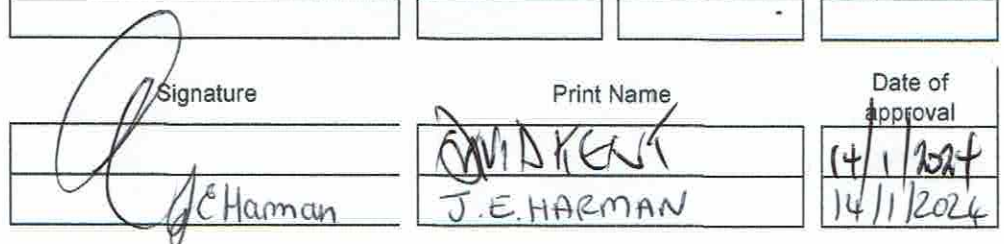 Signature Print Name Date of approval
DAVID KENT 14/1/2024
J E Harman J.E. HARMAN 14/1/2024